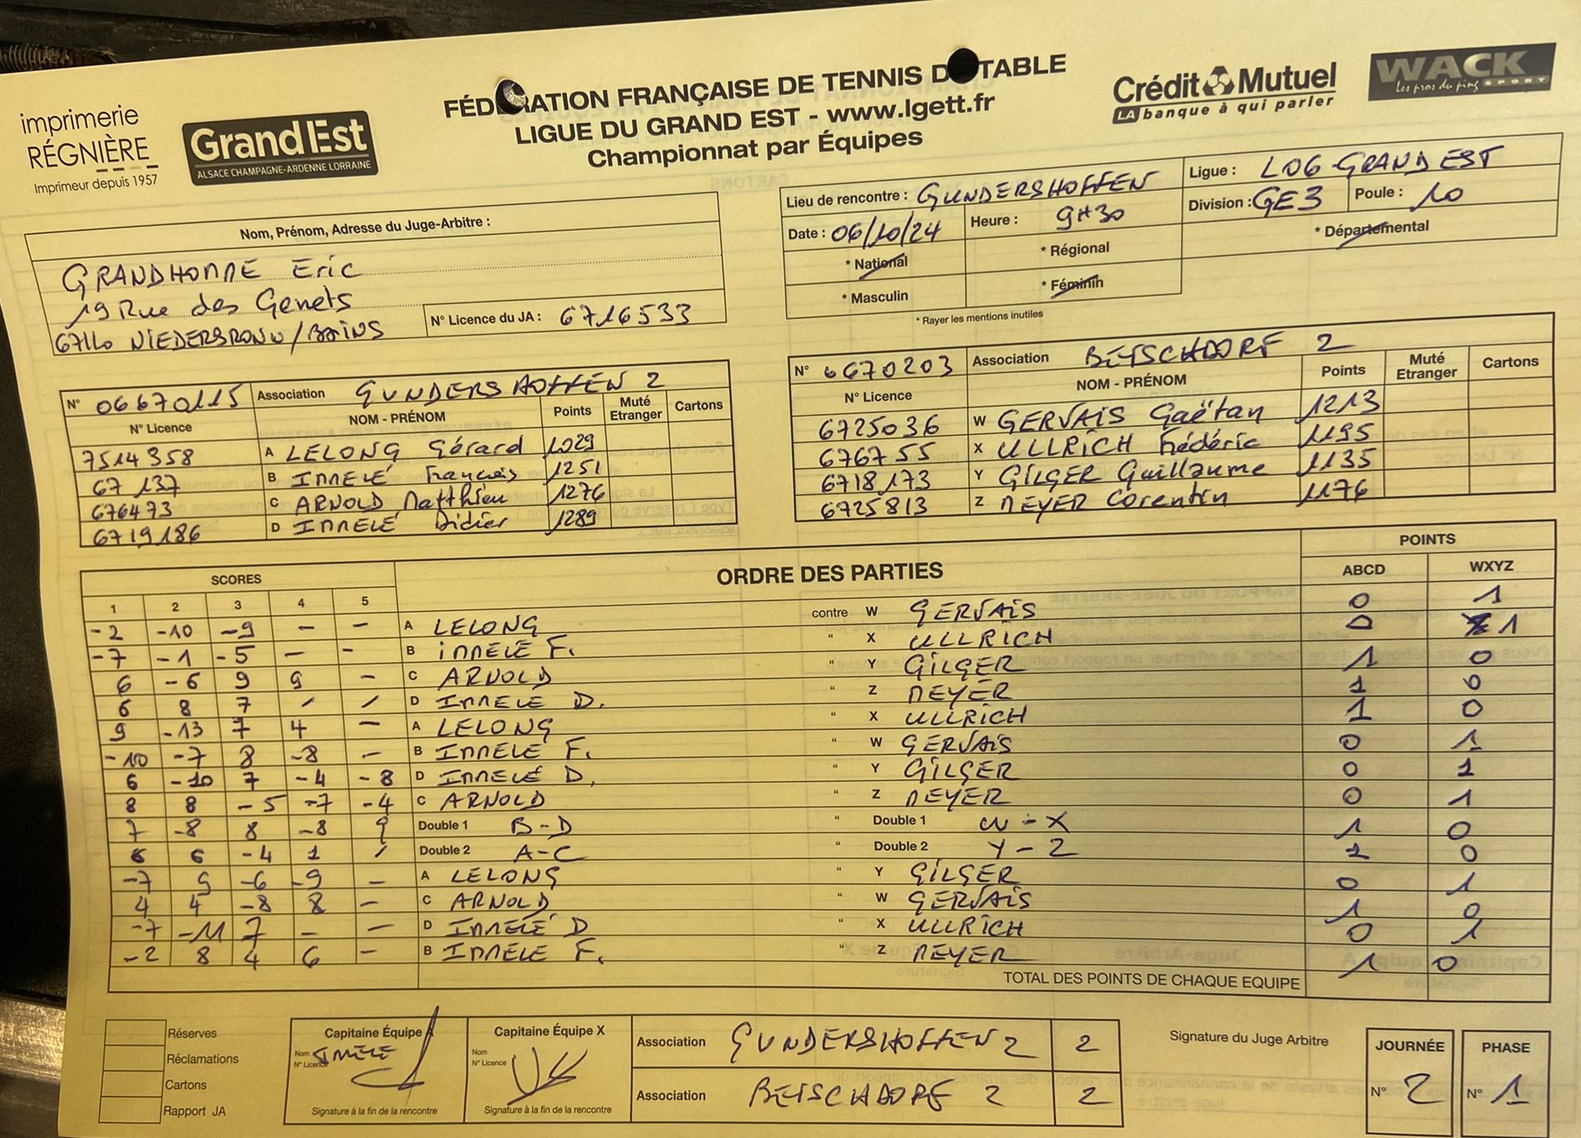 imprimerie
RÉGNIÈRE
Imprimeur depuis 1957
Grand Est
ALSACE CHAMPAGNE-ARDENNE LORRAINE
FÉDÉRATION FRANÇAISE DE TENNIS DE TABLE
LIGUE DU GRAND EST - www.lgett.fr
Championnat par Équipes
Crédit Mutuel
LA banque à qui parler
WACK
SPORT
Les pros du ping
Nom, Prénom, Adresse du Juge-Arbitre :
GRANDHOMME Eric
19 Rue des Genets
67110 NIEDERBRONN/BAINS
N° Licence du JA : 6716533
Lieu de rencontre : GUNDERSHOFFEN
Ligue : L06 GRAND EST
Date : 06/10/24 Heure : 9H30
Division : GE3 Poule : 10
* National * Régional * Départemental
* Masculin * Féminin
* Rayer les mentions inutiles
N° 06670115 Association GUNDERSHOFFEN 2
N° Licence NOM - PRÉNOM Points Muté Etranger Cartons
7514358 A LELONG Gérard 1029
67 137 B IMMELÉ François 1251
676473 C ARNOLD Matthieu 1276
6719186 D IMMELÉ Didier 1289
N° 6670203 Association BETSCHDORF 2
N° Licence NOM - PRÉNOM Points Muté Etranger Cartons
6725036 W GERVAIS Gaëtan 1213
676755 X ULLRICH Frédéric 1195
6718173 Y GILGER Guillaume 1135
6725813 Z MEYER Corentin 1176
SCORES ORDRE DES PARTIES POINTS
1 2 3 4 5 ABCD WXYZ
-2 -10 -9 - - A LELONG contre W GERVAIS 0 1
-7 -1 -5 - - B IMMELÉ F. " X ULLRICH 0 1
6 -6 9 9 - C ARNOLD " Y GILGER 1 0
6 8 7 / / D IMMELÉ D. " Z MEYER 1 0
9 -13 7 4 - A LELONG " X ULLRICH 1 0
-10 -7 8 -8 - B IMMELÉ F. " W GERVAIS 0 1
6 -10 7 -4 -8 D IMMELÉ D. " Y GILGER 0 1
8 8 -5 -7 -4 C ARNOLD " Z MEYER 0 1
7 -8 8 -8 9 Double 1 B-D " Double 1 W-X 1 0
6 6 -4 1 / Double 2 A-C " Double 2 Y-Z 1 0
-7 9 -6 -9 - A LELONG " Y GILGER 0 1
4 4 -8 8 - C ARNOLD " W GERVAIS 1 0
-7 -11 7 - - D IMMELÉ D " X ULLRICH 0 1
-2 8 4 6 - B IMMELÉ F. " Z MEYER 1 0
TOTAL DES POINTS DE CHAQUE EQUIPE
Réserves
Réclamations
Cartons
Rapport JA
Capitaine Équipe A
Nom IMMELÉ
N° Licence
Signature à la fin de la rencontre
Capitaine Équipe X
Nom
N° Licence
Signature à la fin de la rencontre
Association GUNDERSHOFFEN 2 2
Association BETSCHDORF 2 2
Signature du Juge Arbitre
JOURNÉE
N° 2
PHASE
N° 1